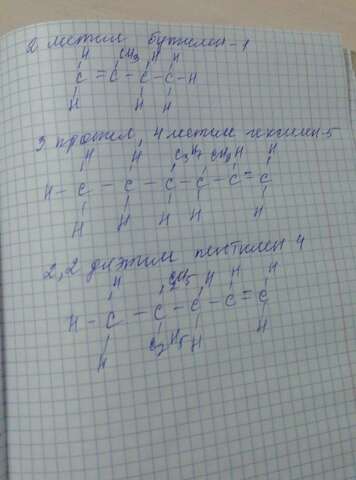 2 метил бутилен-1
H CH3 H H
C = C - C - C - H
H H H
3 пропил, 4 метил гексилен-5
H H C3H7 CH3 H H
H - C - C - C - C - C = C
H H H H H
2,2 диэтил пентилен 4
H C2H5 H H H
H - C - C - C - C = C
H C2H5 H H